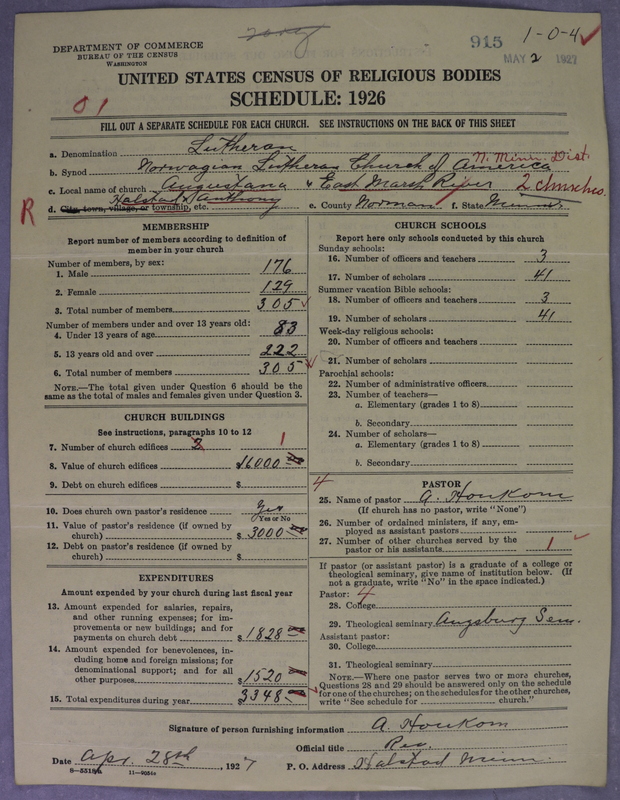 915 1-0-4
MAY 2 1927
DEPARTMENT OF COMMERCE
BUREAU OF THE CENSUS
WASHINGTON
UNITED STATES CENSUS OF RELIGIOUS BODIES
SCHEDULE: 1926
01
FILL OUT A SEPARATE SCHEDULE FOR EACH CHURCH. SEE INSTRUCTIONS ON THE BACK OF THIS SHEET
a. Denomination Lutheran
b. Synod Norwegian Lutheran Church of America N. Minn. Dist.
c. Local name of church Augustana & East Marsh River 2 churches
R
d. City, town, village, or township, etc. Halstad & Anthony e. County Norman f. State Minn.
MEMBERSHIP
Report number of members according to definition of
member in your church
Number of members, by sex:
1. Male 176
2. Female 129
3. Total number of members 305
Number of members under and over 13 years old:
4. Under 13 years of age 83
5. 13 years old and over 222
6. Total number of members 305
NOTE.—The total given under Question 6 should be the
same as the total of males and females given under Question 3.
CHURCH BUILDINGS
See instructions, paragraphs 10 to 12
7. Number of church edifices 2 1
8. Value of church edifices $16000
9. Debt on church edifices $
10. Does church own pastor's residence Yes
(Yes or No)
11. Value of pastor's residence (if owned by
church) $3000
12. Debt on pastor's residence (if owned by
church) $
EXPENDITURES
Amount expended by your church during last fiscal year
13. Amount expended for salaries, repairs,
and other running expenses; for im-
provements or new buildings; and for
payments on church debt $1828
14. Amount expended for benevolences, in-
cluding home and foreign missions; for
denominational support; and for all
other purposes $1520
15. Total expenditures during year $3348
CHURCH SCHOOLS
Report here only schools conducted by this church
Sunday schools:
16. Number of officers and teachers 3
17. Number of scholars 41
Summer vacation Bible schools:
18. Number of officers and teachers 3
19. Number of scholars 41
Week-day religious schools:
20. Number of officers and teachers
21. Number of scholars
Parochial schools:
22. Number of administrative officers
23. Number of teachers—
a. Elementary (grades 1 to 8)
b. Secondary
24. Number of scholars—
a. Elementary (grades 1 to 8)
b. Secondary
4 PASTOR
25. Name of pastor A. Houkom
(If church has no pastor, write "None")
26. Number of ordained ministers, if any, em-
ployed as assistant pastors
27. Number of other churches served by the
pastor or his assistants 1
If pastor (or assistant pastor) is a graduate of a college or
theological seminary, give name of institution below. (If
not a graduate, write "No" in the space indicated.)
Pastor: 4
28. College
29. Theological seminary Augsburg Sem.
Assistant pastor:
30. College
31. Theological seminary
NOTE.—Where one pastor serves two or more churches,
Questions 28 and 29 should be answered only on the schedule
for one of the churches; on the schedules for the other churches,
write "See schedule for church."
Signature of person furnishing information A. Houkom
Official title Rev.
Date Apr. 28th, 1927 P. O. Address Halstad Minn.
11-9054a